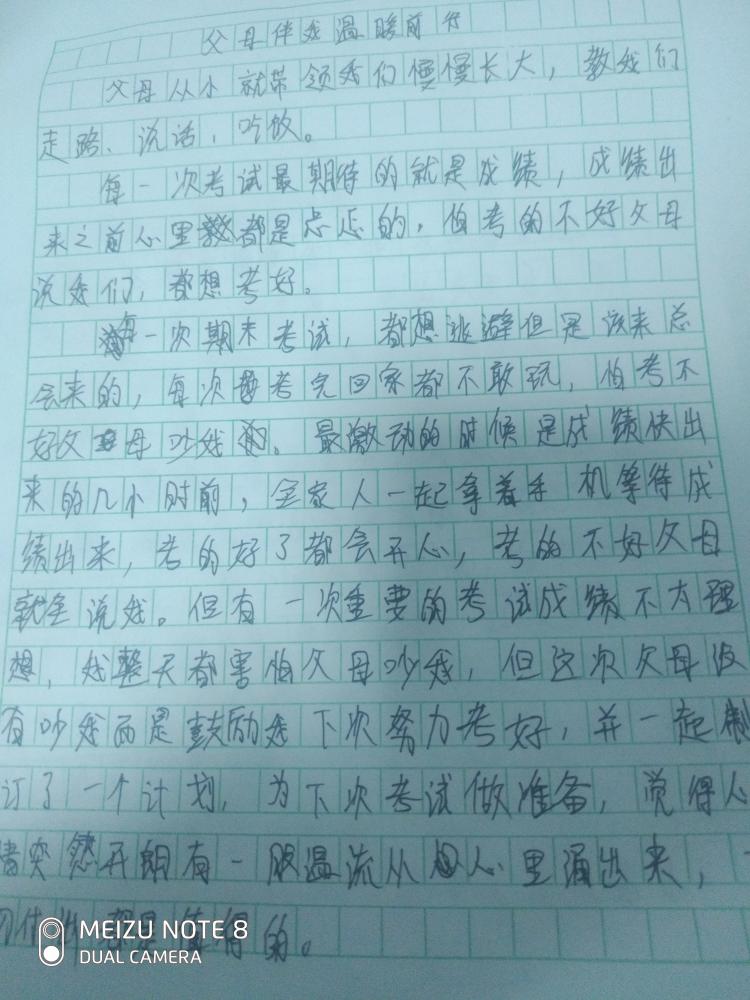 父母伴我温暖前行
父母从小就带领我们慢慢长大，教我们
走路、说话，吃饭。
每一次考试最期待的就是成绩，成绩出
来之前心里都是忐忑的，怕考的不好父母
说我们，都想考好。
每一次期末考试，都想逃避但是该来总
会来的，每次考完回家都不敢玩，怕考不
好父母吵我。最激动的时候是成绩快出
来的几小时前，全家人一起拿着手机等待成
绩出来，考的好了都会开心，考的不好父母
就会说我。但有一次重要的考试成绩不太理
想，我整天都害怕父母吵我，但这次父母没
有吵我而是鼓励我下次努力考好，并一起制
订了一个计划，为下次考试做准备，觉得心
情突然开朗有一股温流从心里涌出来，一
切付出都是值得的。
MEIZU NOTE 8
DUAL CAMERA